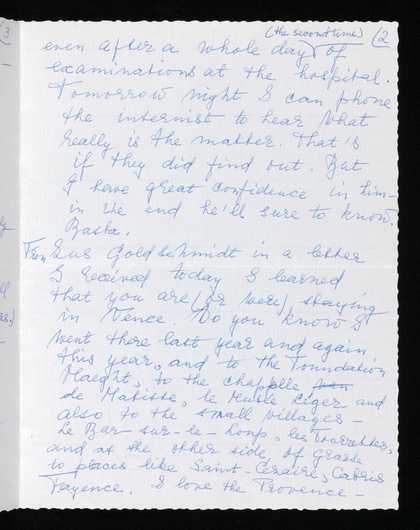 3
(the second time) 2
even after a whole day of
examinations at the hospital.
Tomorrow night I can phone
the internist to hear what
really is the matter. That's
if they did find out. But
I have great confidence in him-
in the end he'll sure to know.
Basta.
From Sus Goldschmidt in a letter
I received today I learned
that you are (or were) staying
in Vence. Do you know I
went there last year and again
this year, and to the Foundation
Maeght, to the chapelle
de Matisse, le Musée Léger and
also to the small villages -
Le Bar-sur-le-Loup, les Tourettes,
and at the other side of Grasse
to places like Saint-Cézaire, Cabris
Fayence. I love the Provence -